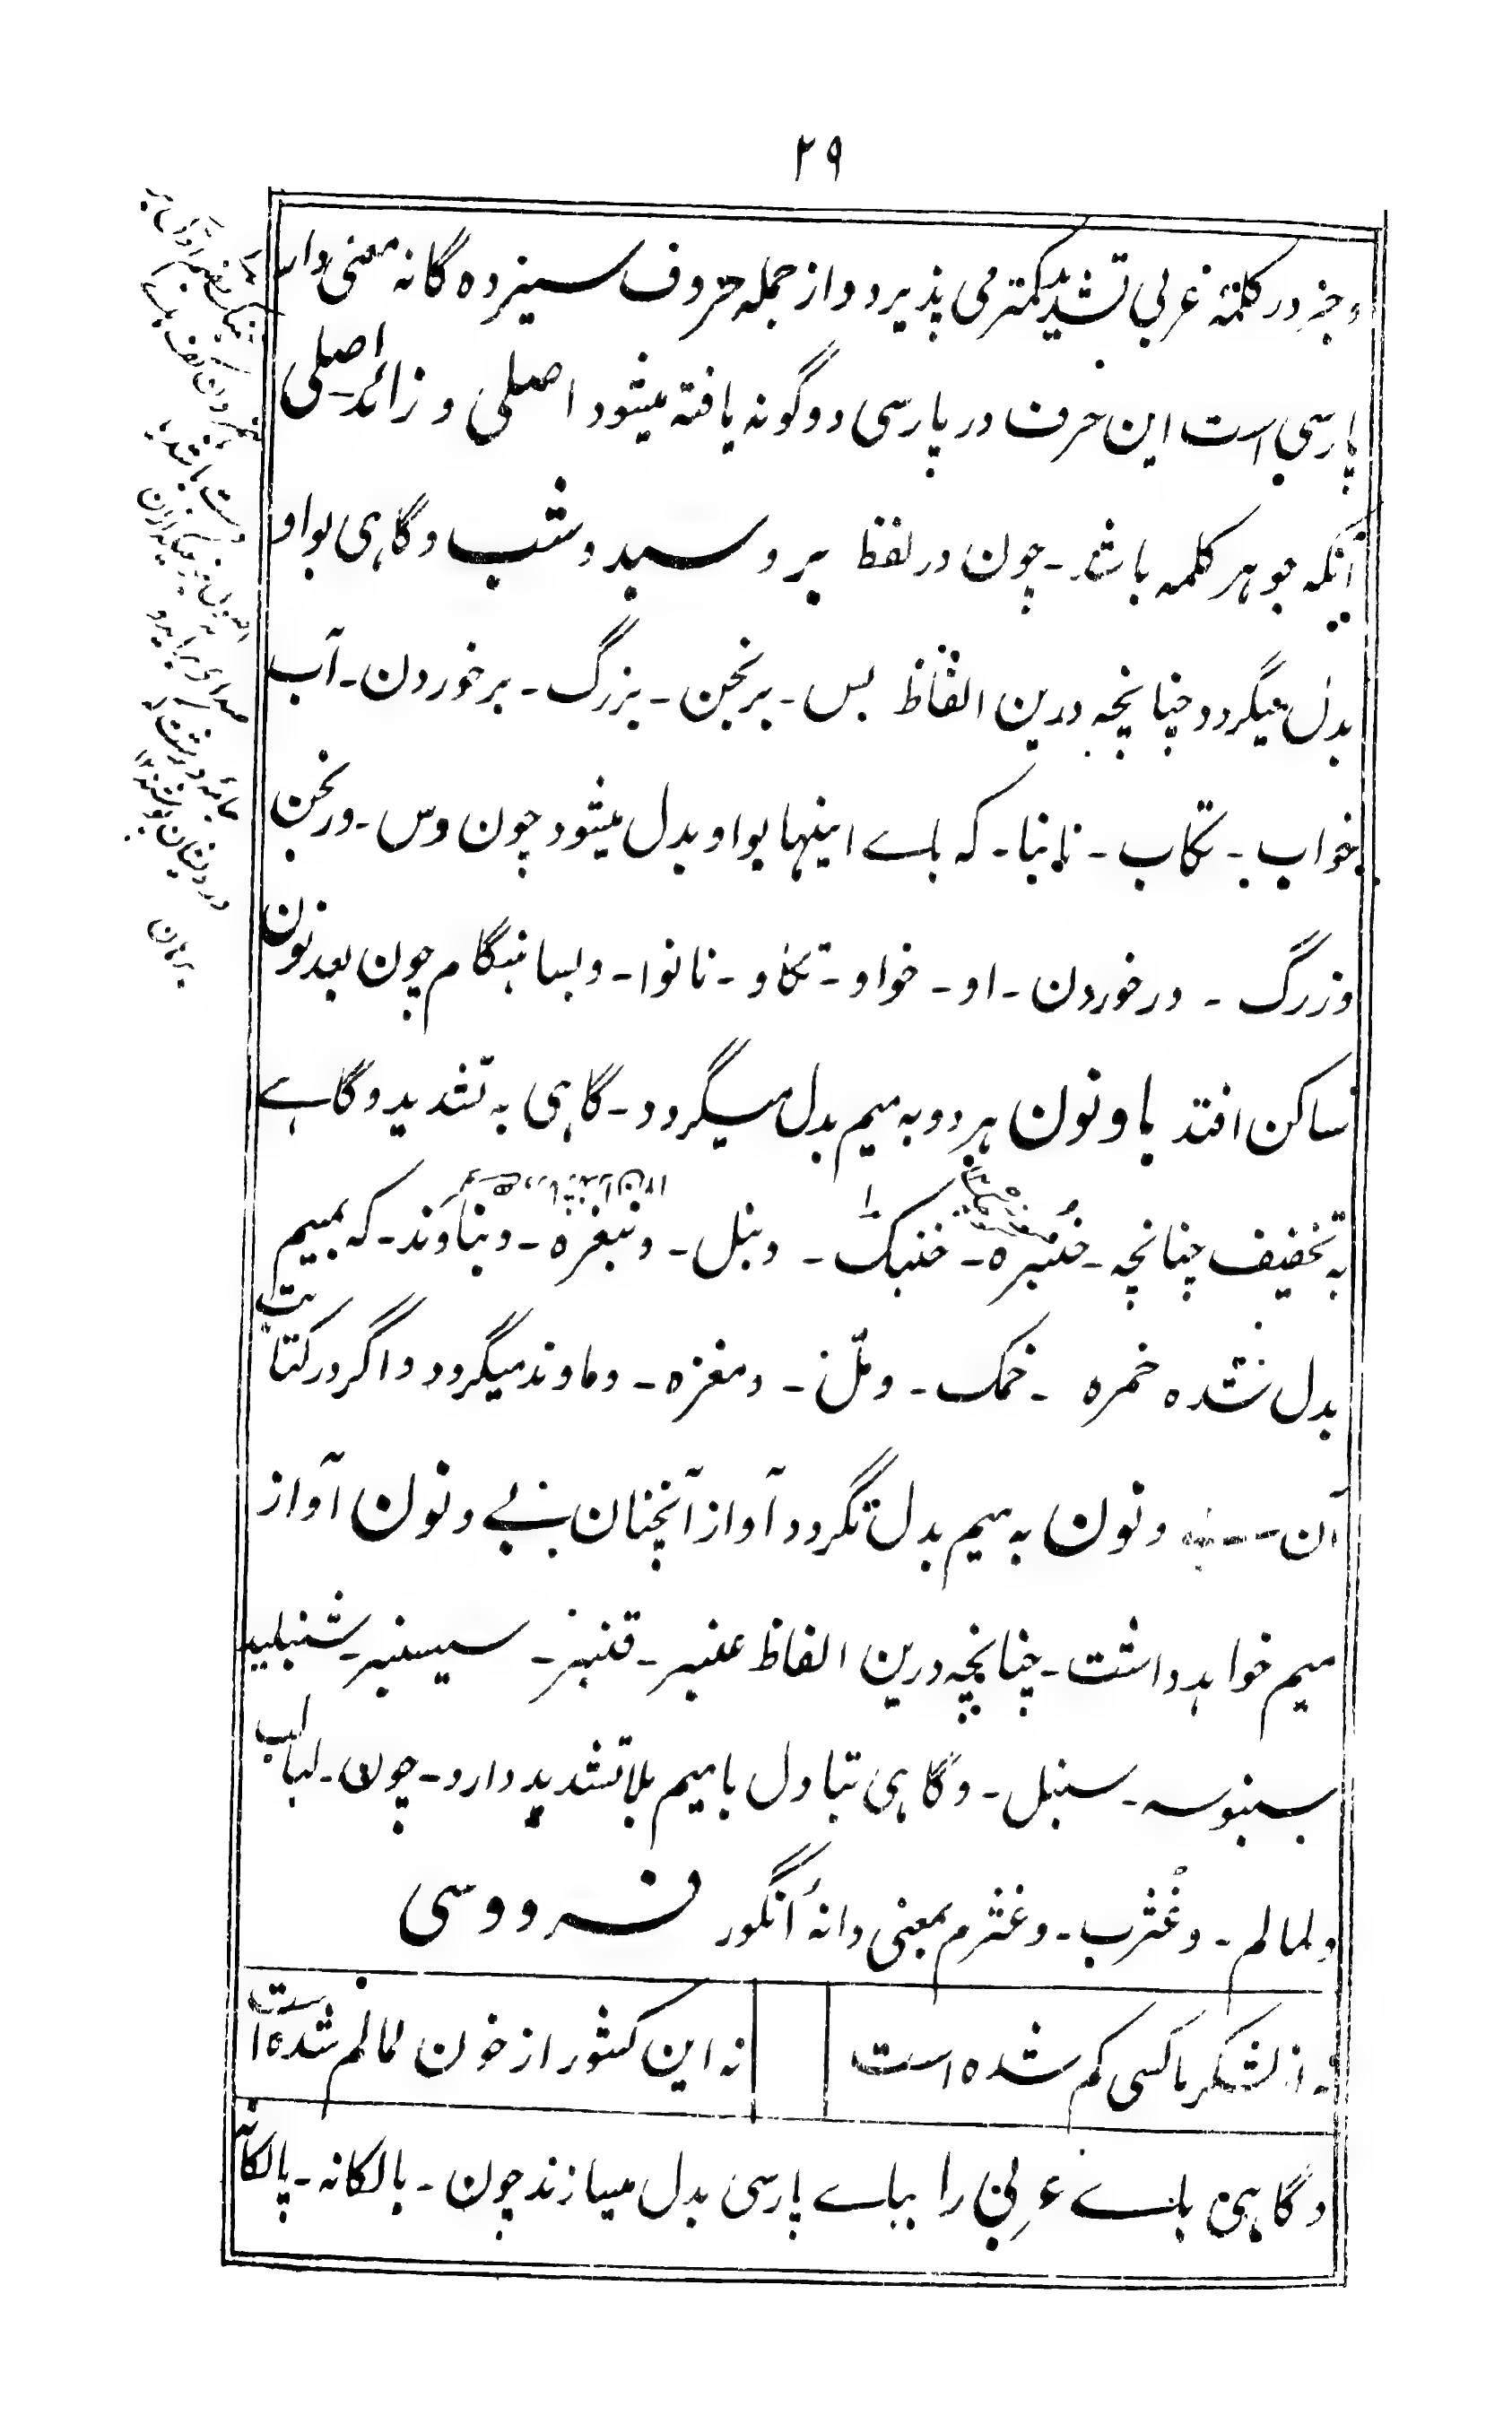 ۲۹
وجز در کلمهٔ عربی تشدید کمتر می پذیرد و از جمله حروف سیزده گانه معنی دار
پارسی است این حرف در پارسی دوگونه یافته میشود اصلی و زائد۔ اصلی
آنکه جوهر کلمه باشد۔ چون در لفظ بر و سبد و شب و گاہی بواو
بدل میگردد چنانچه درین الفاظ بس۔ برنجن۔ بزرگ۔ برخوردن۔ آب
خواب۔ تکاب۔ نانبا۔ که بای اینها بواو بدل میشود چون وس۔ ورنجن
وزرگ۔ ورخوردن۔ او۔ خواو۔ تکاو۔ نانوا۔ و بسا هنگام چون بعد نون
ساکن افتد با و نون هر دو به میم بدل میگردد۔ گاہی به تشدید و گاہے
به تخفیف چنانچه۔ خنبره۔ خنبک۔ دنبل۔ دنبغزه۔ دنباوند۔ که بمیم
بدل شده خمره۔ خمک۔ دمّل۔ دمغزه۔ دماوند میگردد و اگر در کتابت
آن ونون به میم بدل نگردد آواز آنچنان بے ونون آواز
میم خواہد داشت۔ چنانچه درین الفاظ عنبر۔ قنبر۔ سیسنبر۔ شنبلید
سنبوسه۔ سنبل۔ وگاہی تبادل بامیم بلا تشدید دارد۔ چون۔ لبالب
ولمالم۔ وغژب۔ وغژم بمعنی دانهٔ انگور فردوسی
نه از لشکر ما کسی کم شده است نه این کشور از خون لمالم شده است
وگاہی بائے عربی را ببائے پارسی بدل میسازند چون۔ بالکانه۔ پالکانه
برهان